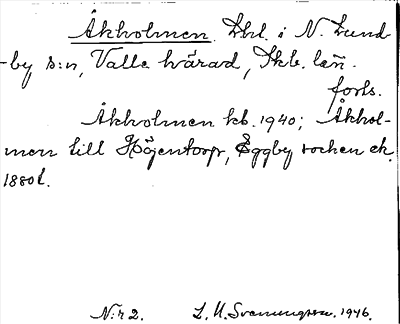 Åkholmen. Lht. i N. Lund-
by s:n, Valle härad, Skb. län.
forts.
Åkholmen kb. 1940; Åkhol-
men till Höjentorp, Eggby socken ek.
1880t.
N:r 2. L. M. Svanungsson. 1946.